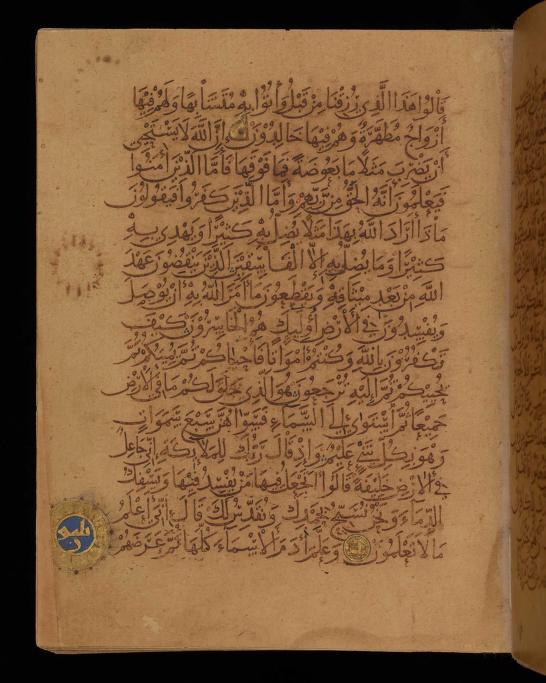 قالوا هذا الذي رزقنا من قبل وأتوا به متشابها ولهم فيها
أزواج مطهرة وهم فيها خالدون إن الله لا يستحيي
أن يضرب مثلا ما بعوضة فما فوقها فأما الذين آمنوا
فيعلمون أنه الحق من ربهم وأما الذين كفروا فيقولون
ماذا أراد الله بهذا مثلا يضل به كثيرا ويهدي به
كثيرا وما يضل به إلا الفاسقين الذين ينقضون عهد
الله من بعد ميثاقه ويقطعون ما أمر الله به أن يوصل
ويفسدون في الأرض أوليك هم الخاسرون كيف
تكفرون بالله وكنتم أمواتا فأحياكم ثم يميتكم ثم
يحييكم ثم إليه ترجعون هو الذي خلق لكم ما في الأرض
جميعا ثم استوى إلى السماء فسواهن سبع سموات
وهو بكل شيء عليم وإذ قال ربك للملائكة إني جاعل
في الأرض خليفة قالوا أتجعل فيها من يفسد فيها ويسفك
الدماء ونحن نسبح بحمدك ونقدس لك قال إني أعلم
ما لا تعلمون وعلم آدم الأسماء كلها ثم عرضهم